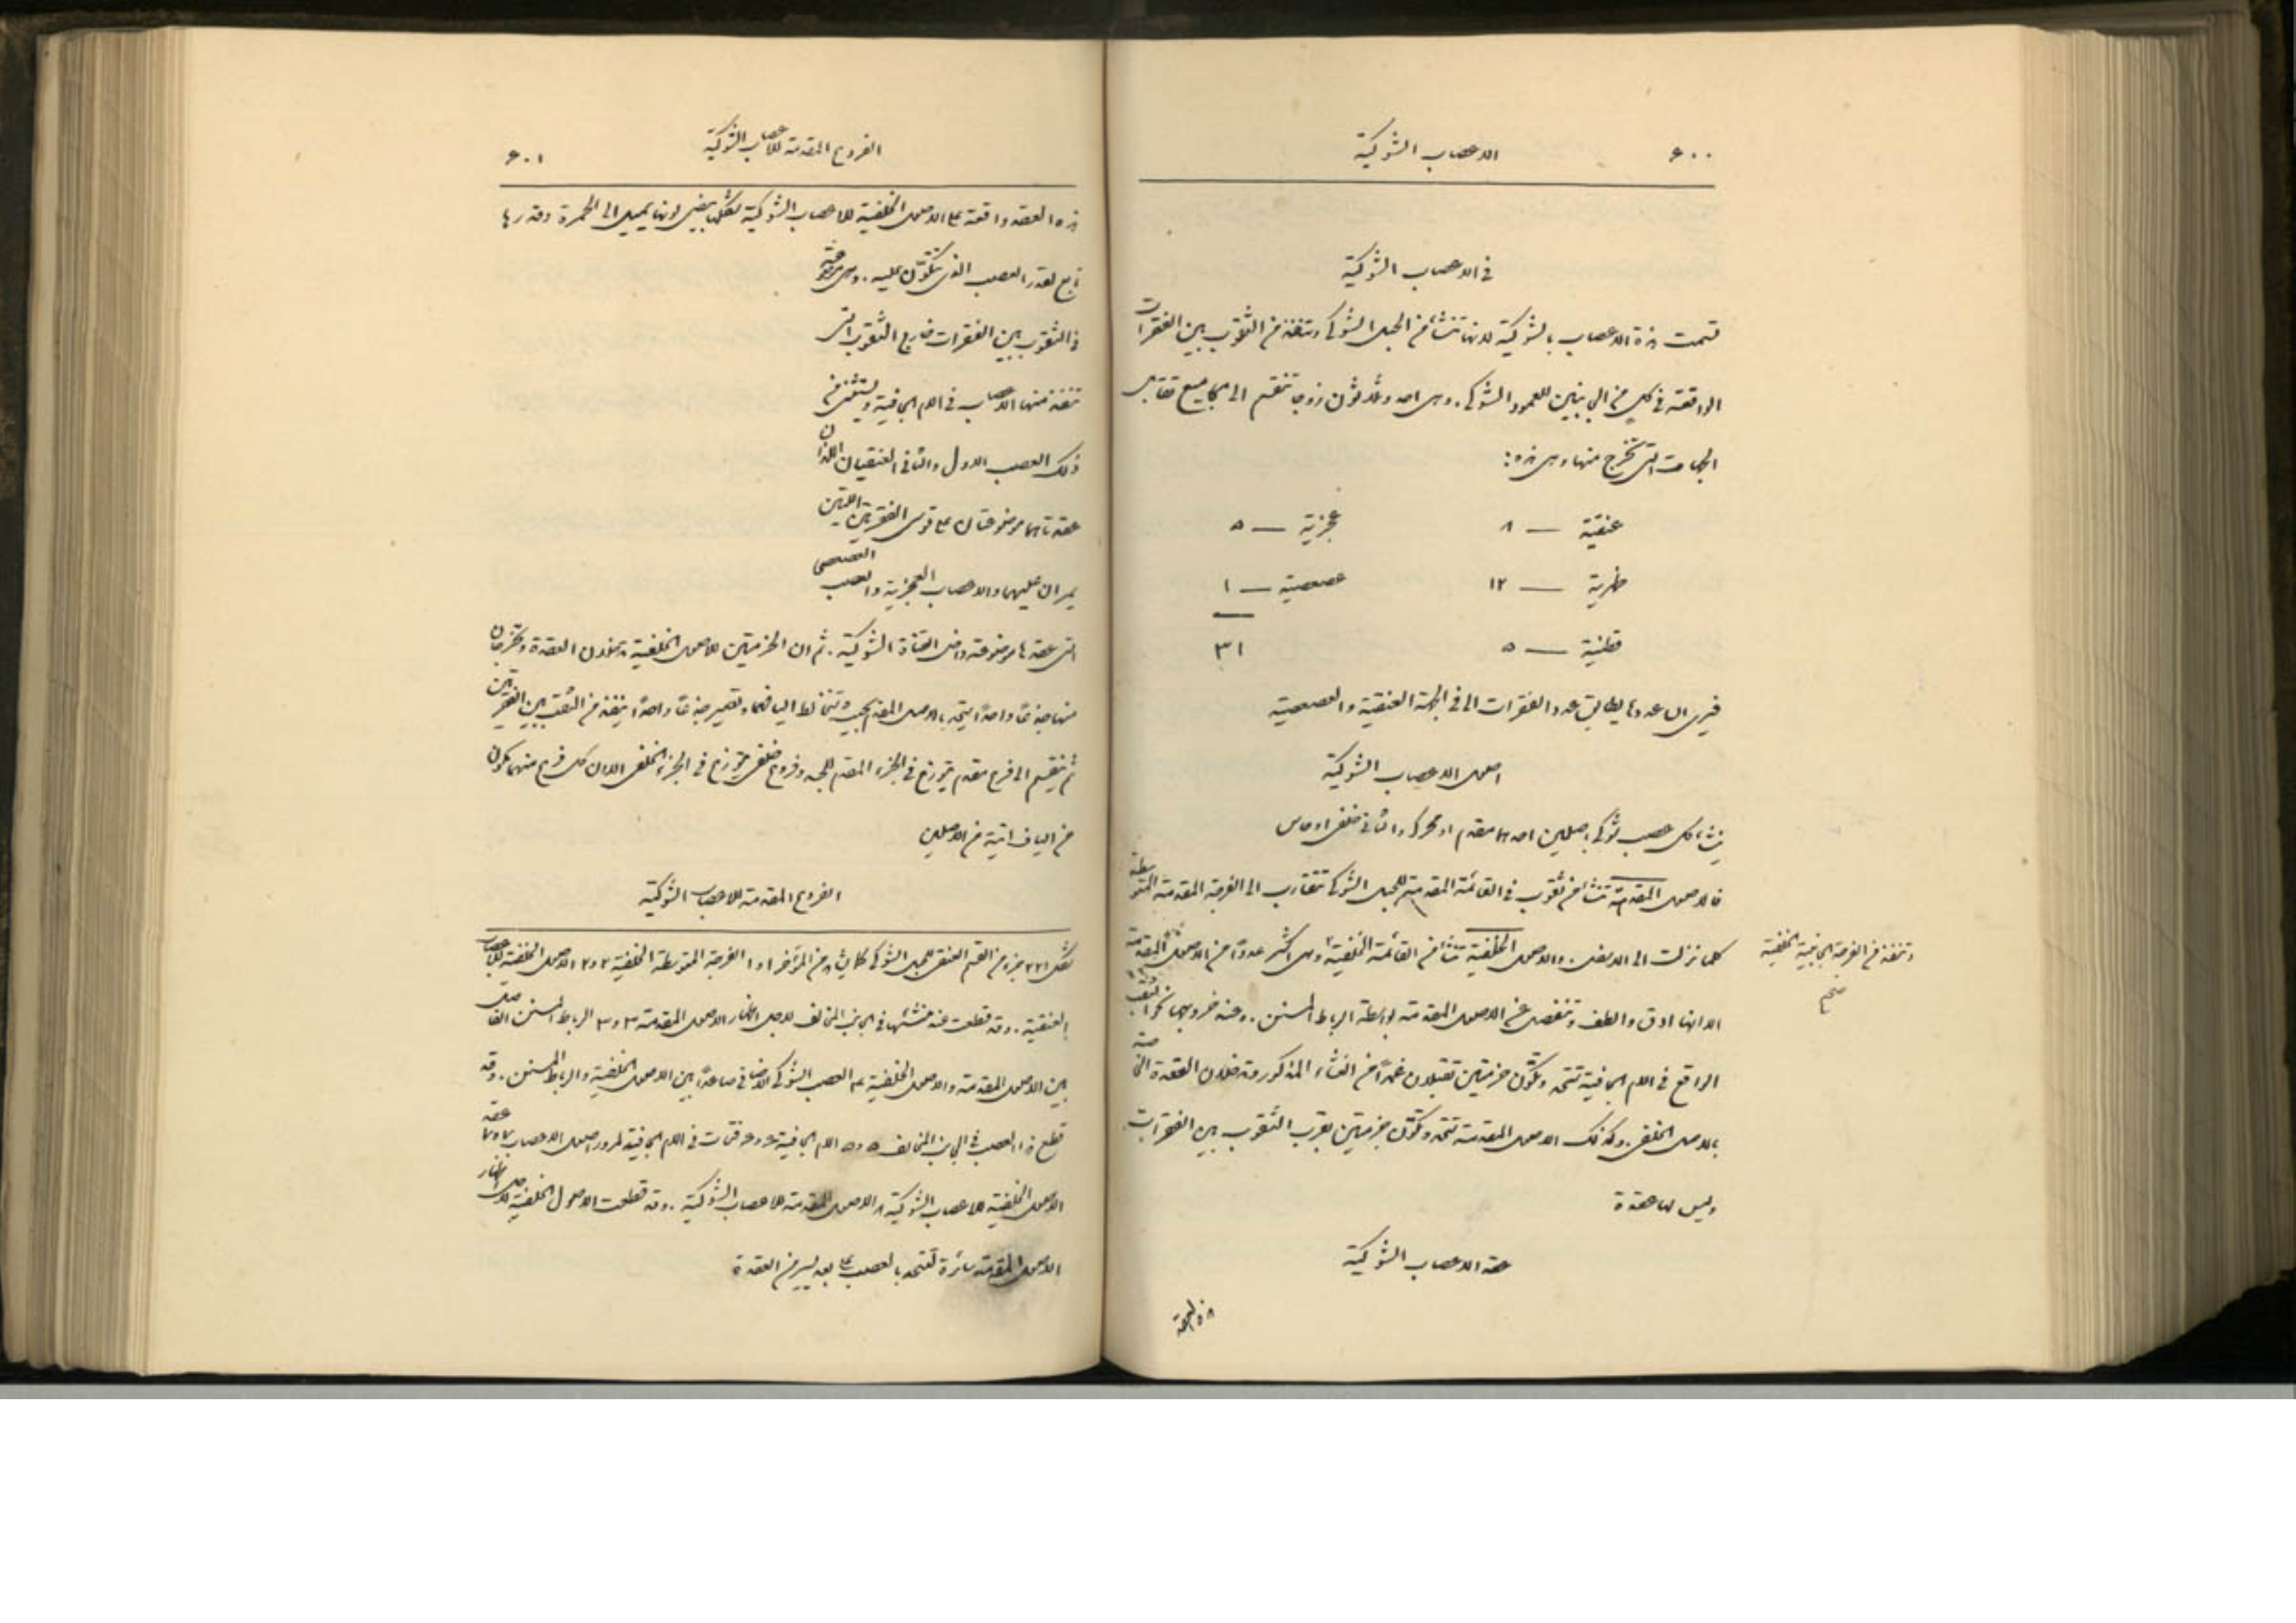 ٦٠٠
الاعصاب الشوكية
في الاعصاب الشوكية
تسمت هذه الاعصاب بالشوكية لانها تنشأ من الحبل الشوكي وتنفذ من الثقوب بين الفقرات
الواقعة في كل من الجانبين للعمود الشوكي. وهي احد وثلاثون زوجا تنقسم الى مجاميع تقابل
الجهات التي تخرج منها وهي هذه:
عنقية — ٨ عجزية — ٥
ظهرية — ١٢ عصعصية — ١
قطنية — ٥ ٣١
فيرى ان عددها يطابق عدد الفقرات الا في الجهة العنقية والعصعصية
اصول الاعصاب الشوكية
ينشأ كل عصب شوكي باصلين احدهما مقدم او محرك والثاني خلفي او حاس
فالاصول المقدمة تنشأ من ثقوب في القائمة المقدمة للحبل الشوكي تتقارب الى الفرجة المقدمة المتوسطة
كلما نزلت الى الاسفل. والاصول الخلفية تنشأ من القائمة الخلفية وهي اكثر عددًا من الاصول المقدمة
وتنفذ من الفرجة الجانبية الخلفية
صح
الا انها ادق والطف وتنفصل عن الاصول المقدمة بواسطة الرباط المسنن. وعند خروجها نحو الثقب
الواقع في الام الجافية تتحد وتكون حزمتين تقبلان غمدًا من الغشاء المذكور وتدخلان العقدة الخاصة
بالاصل الخلفي. وكذلك الاصول المقدمة تتحد وتكون حزمتين بقرب الثقوب بين الفقرات
وليس لها عقدة
عقد الاعصاب الشوكية
هذه العقد
الفروع المقدمة للاعصاب الشوكية
٦٠١
هذه العقد واقعة على الاصول الخلفية للاعصاب الشوكية شكلها بيضي لونها يميل الى الحمرة وقدرها
تابع لقدر العصب الذي تتكون عليه. وهي موضوعة
في الثقوب بين الفقرات خارج الثقوب التي
تنفذ منها الاعصاب في الام الجافية ويستثنى من
ذلك العصب الاول والثاني العنقيان اللذان
عقدتاهما موضوعتان على قوسي الفقرتين اللتين
يمران عليهما والاعصاب العجزية والعصب العصعصي
التي عقدها موضوعة داخل القناة الشوكية. ثم ان الحزمتين للاصول الخلفية تدخلان العقدة وتخرجان
منها جذعًا واحدًا يتحد بالاصل المقدم بحيث تتخالط اليافهما وتصير جذعًا واحدًا ينفذ من الثقب بين الفقرتين
ثم ينقسم الى فرع مقدم يتوزع في الجزء المقدم للجسد وفرع خلفي يتوزع في الجزء الخلفي الا ان كل فرع منهما مكون
من الياف اتية من الاصلين
الفروع المقدمة للاعصاب الشوكية
العنقية. وقد قطعت عند منشئها في الجانب المخالف لاجل اظهار الاصول المقدمة ٣ و٣ الرباط المسنن الفاصل
بين الاصول المقدمة والاصول الخلفية ٤ العصب الشوكي الاضافي صاعدًا بين الاصول الخلفية والرباط المسنن. وقد
قطع هذا العصب في الجانب المخالف ٥ و٥ الام الجافية ٦ و٦ فتحات في الام الجافية لمرور اصول الاعصاب ٧ و٧ عقد
الاصول الخلفية للاعصاب الشوكية ٨ الاصول المقدمة للاعصاب الشوكية. وقد قطعت الاصول الخلفية لاجل اظهار
الاصول المقدمة سائرة لتتحد بالعصب على بعد يسير من العقدة